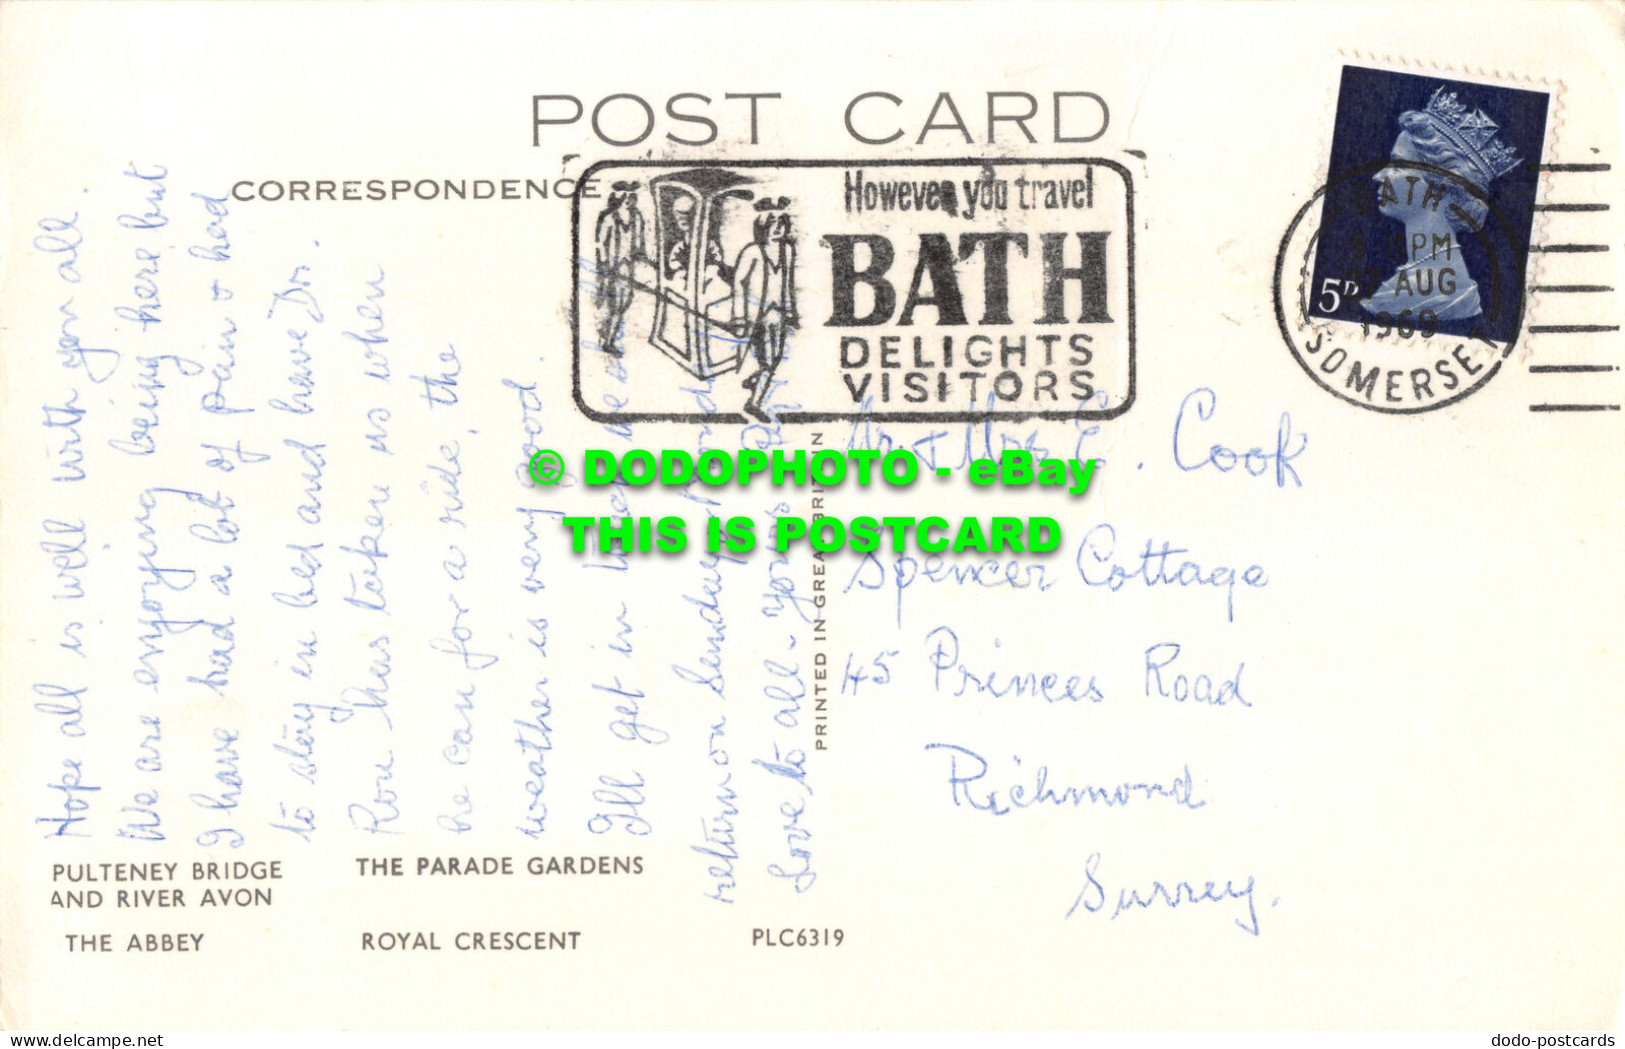 POST CARD
CORRESPONDENCE
However you travel
BATH
DELIGHTS
VISITORS
BATH
PM
AUG
1969
SOMERSET
5D
Hope all is well with you all.
We are enjoying being here but
I have had a lot of pain & had
to stay in bed and have Dr.
Ron has taken us when
he can for a ride, the
weather is very good.
I'll get in touch we shall
return on Sunday
Love to all - Yours
Mr. & Mrs E. Cook
Spencer Cottage
45 Princes Road
Richmond
Surrey.
© DODOPHOTO - eBay
THIS IS POSTCARD
PRINTED IN GREAT BRITAIN
PULTENEY BRIDGE
AND RIVER AVON
THE PARADE GARDENS
THE ABBEY
ROYAL CRESCENT
PLC6319
www.delcampe.net
dodo-postcards